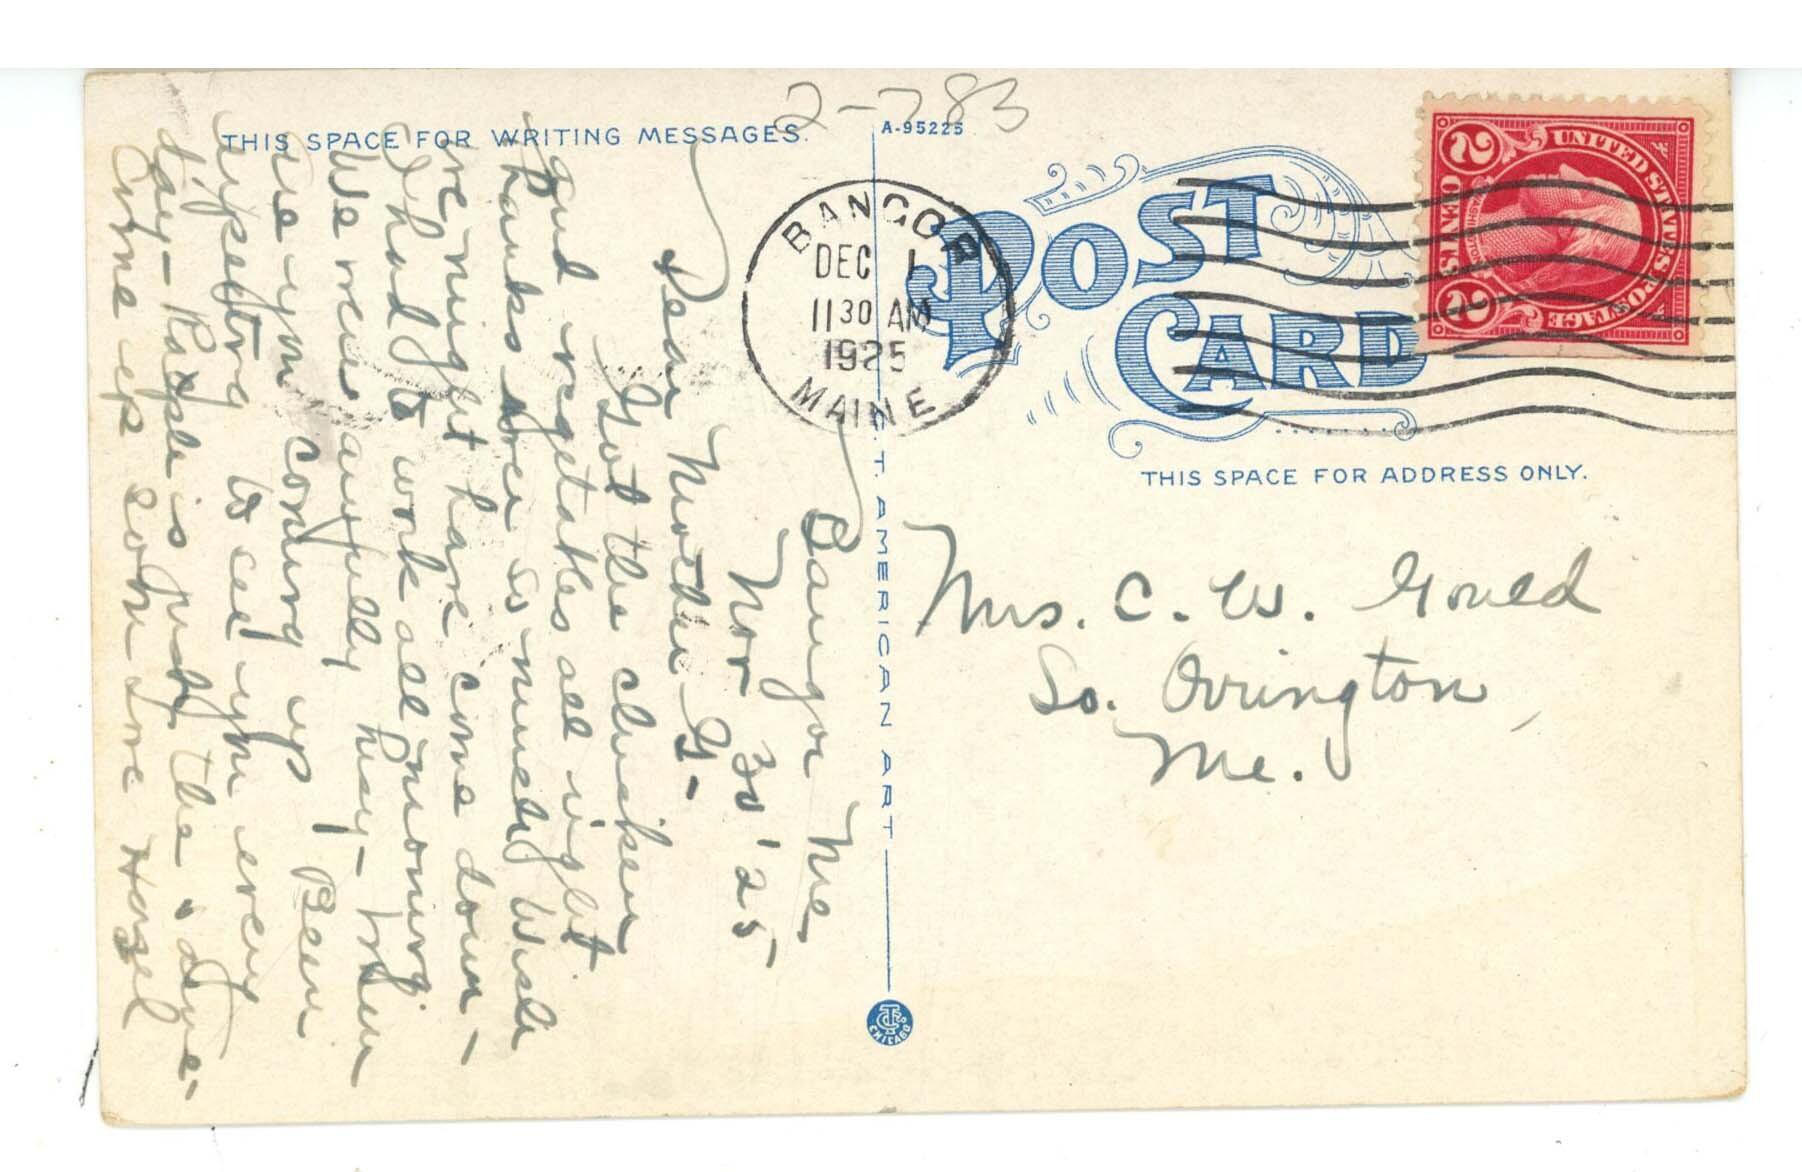 2-783
THIS SPACE FOR WRITING MESSAGES.
A-95225
POST
CARD
BANGOR
DEC 1
11 30 AM
1925
MAINE
UNITED STATES POSTAGE
2 CENTS 2
C.T. AMERICAN ART
CHICAGO
THIS SPACE FOR ADDRESS ONLY.
Mrs. C. W. Gould
So. Orrington,
Me.
Bangor Me.
Nov 30 '25
Dear Mother G-
Got the chicken
and vegetables all right
thanks ever so much Wish
we might have come down-
I had to work all morning.
We were awfully busy-
are you coming up? Been
expecting to see you every
day- is just the same.
Come up soon Love Hazel